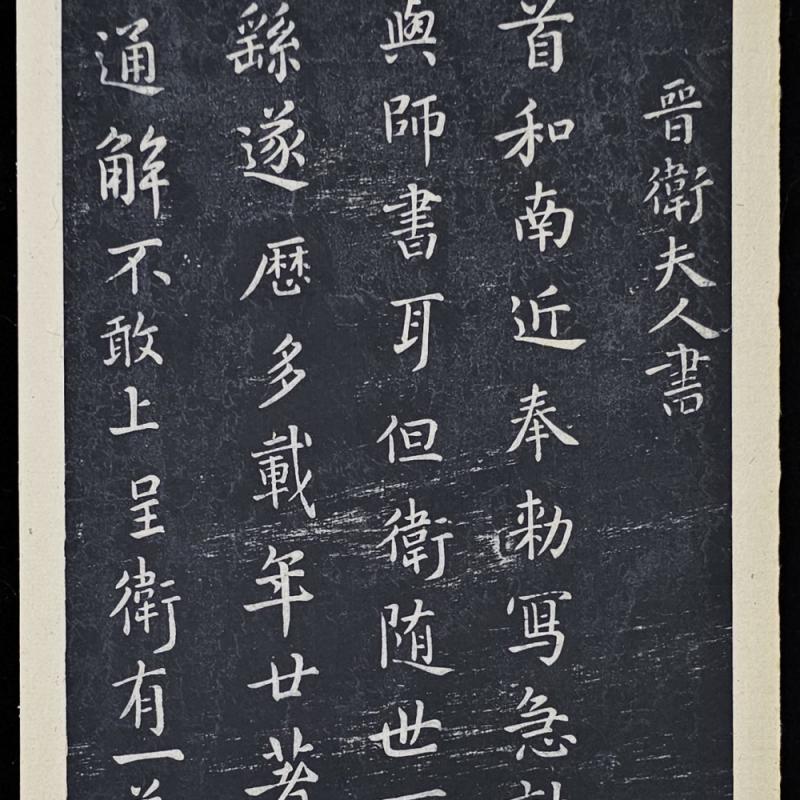 晉衛夫人書
首和南近奉勅寫急
與師書耳但衛随世
繇遂暦多載年廿著
通解不敢上呈衛有一